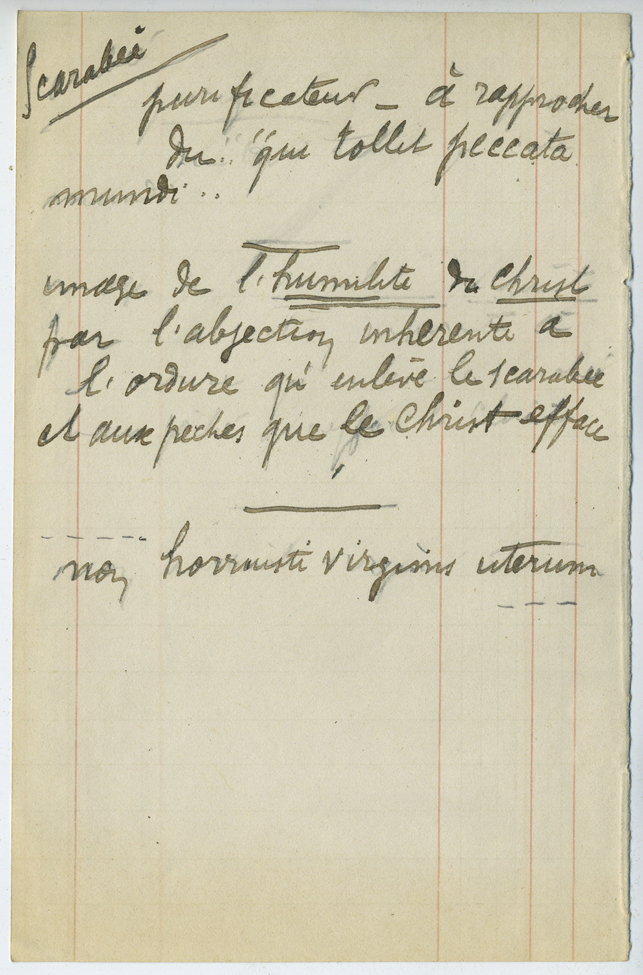 Scarabée
purificateur _ à rapprocher
du.. "qui tollit peccata
mundi..
image de l'humilité du Christ
par l'abjection inhérente à
l'ordure qu'enlève le scarabée
et aux péchés que le Christ efface
non horruisti virginis uterum